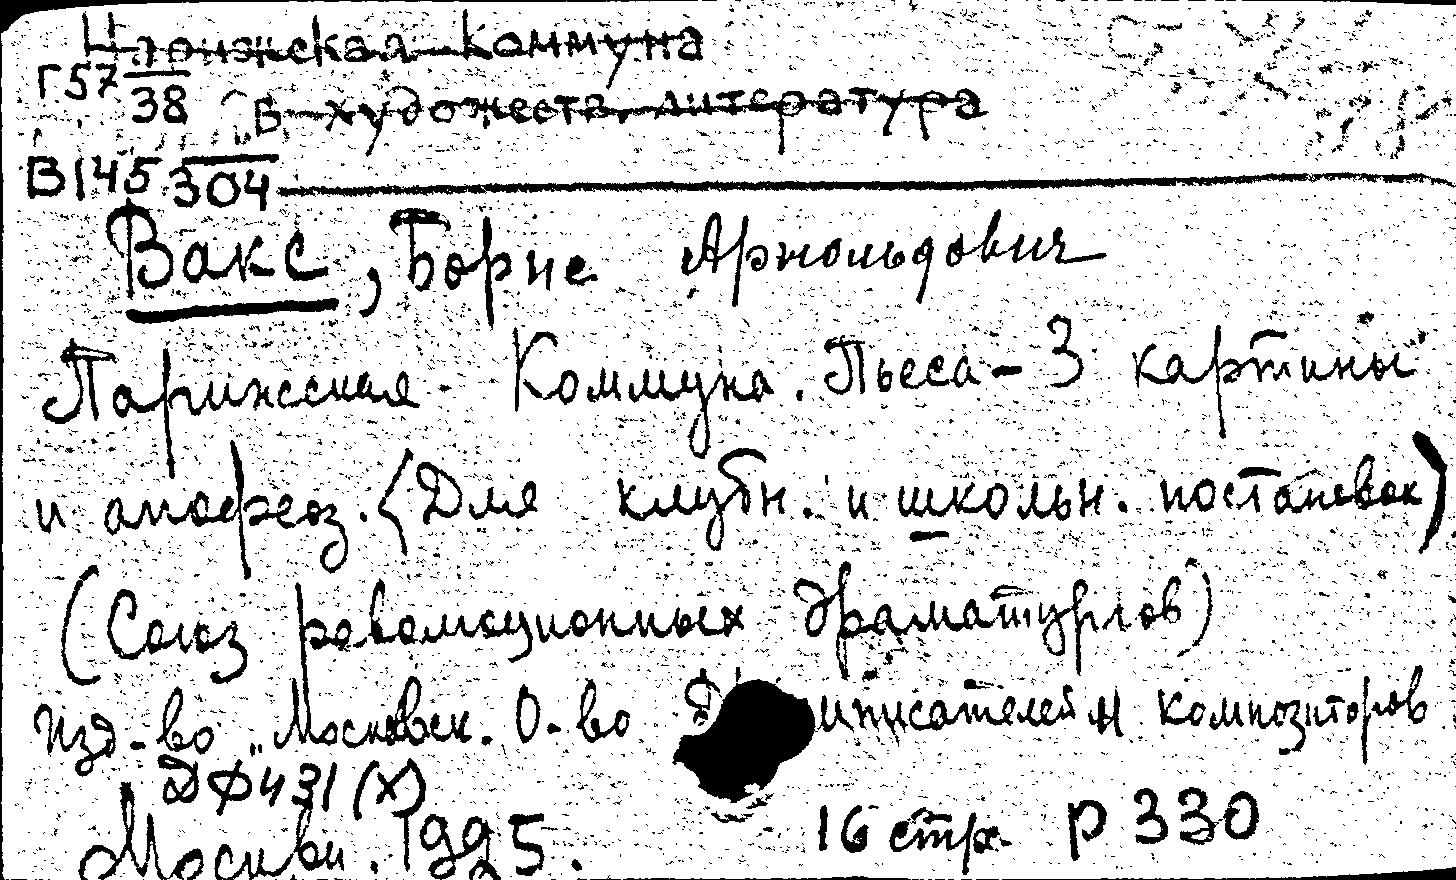 Парижская Коммуна
Г57 38 В художеств. литература
В145 304
Вакс, Борис Арнольдович
Парижская Коммуна. Пьеса – 3 картины
и апофеоз. (Для клубн. и школьн. постановок)
(Союз революционных драматургов)
Изд-во „Московск. О-во писателей и композиторов
ДФ431(х)
Москва. 1925. 16 стр. Р 330